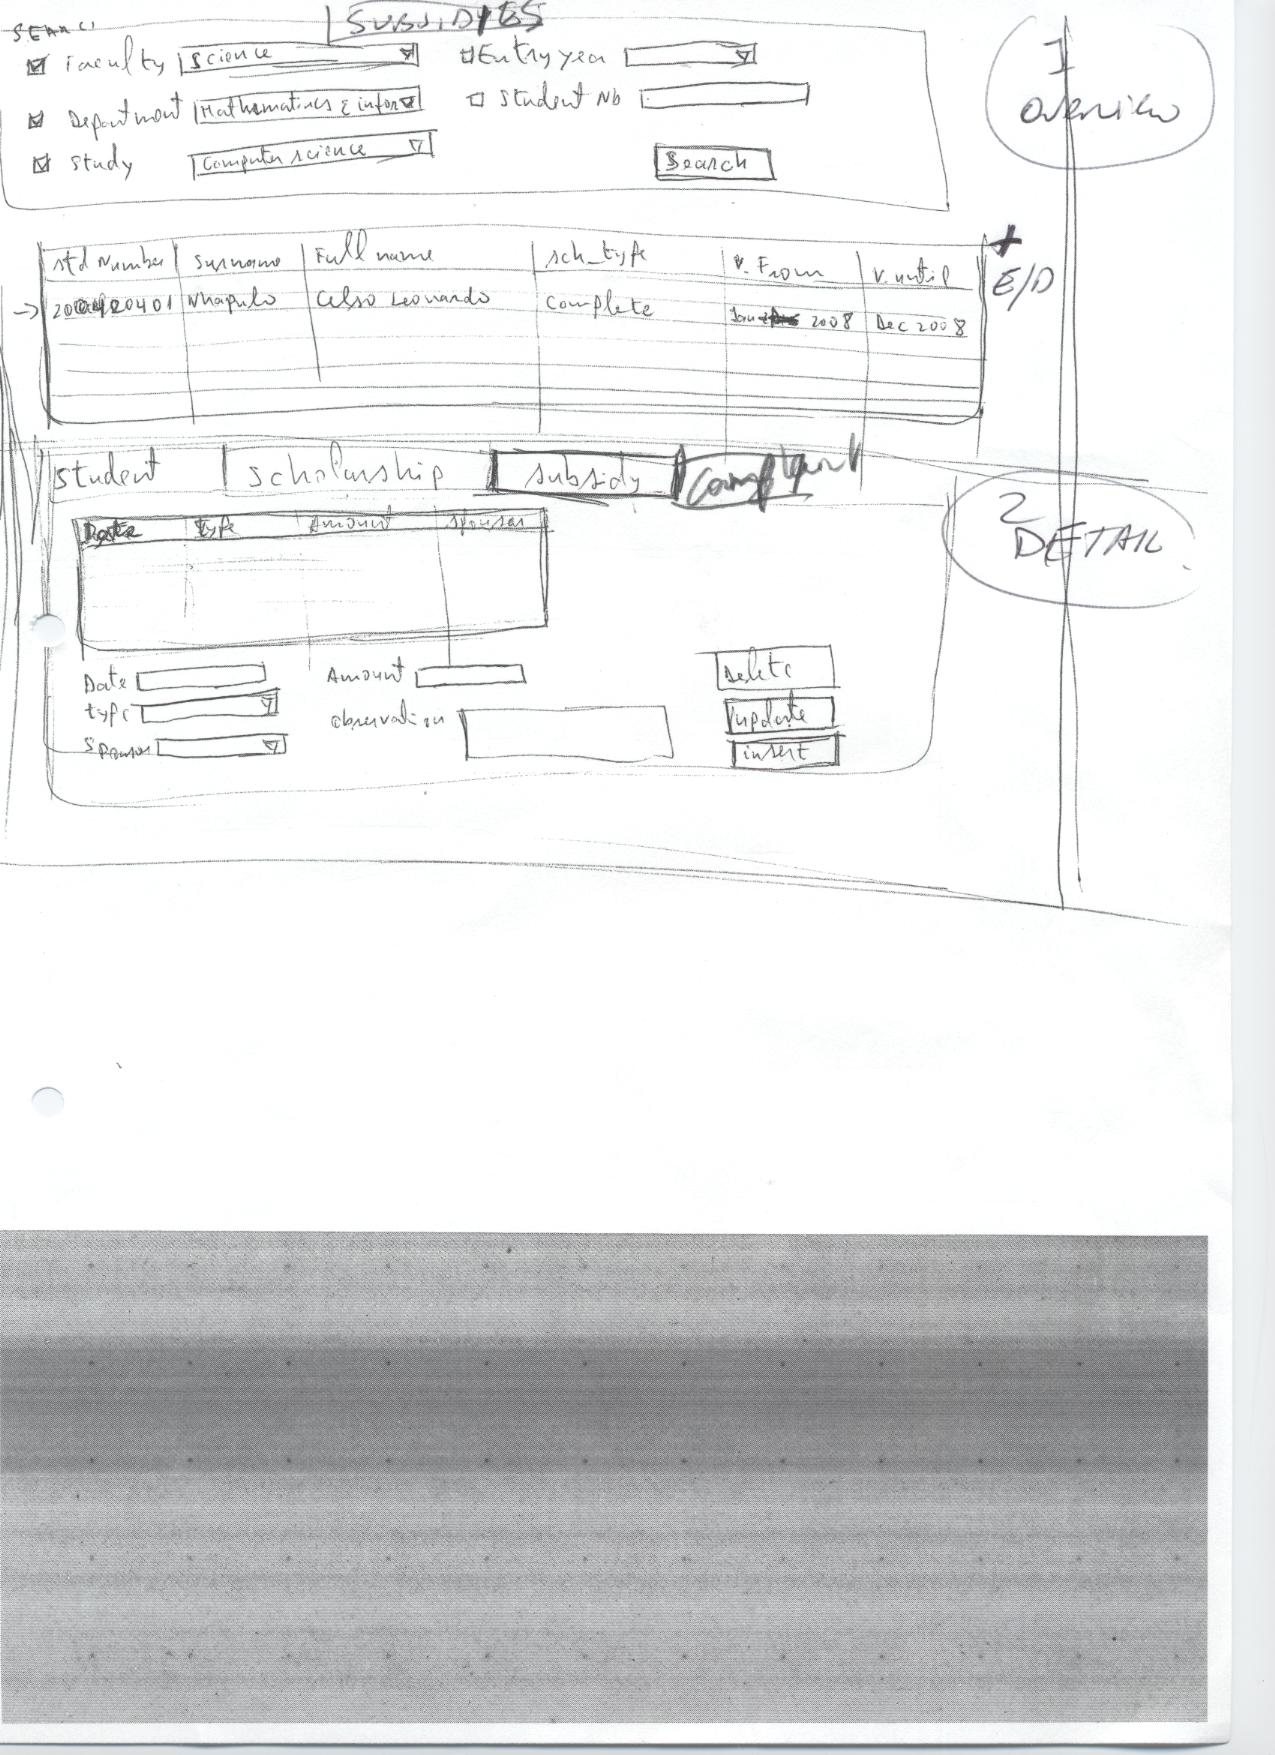 SUBSIDIES
Faculty Science Entry year
Department Mathematics & infor Student Nb
Study Computer science Search
1
overview
Std Number Surname Full name sch_type V. From V. until
Nhapulo Celso Leonardo Complete Jan 2008 Dec 2008
+
E/D
Student Scholarship Subsidy
2
DETAIL
Date type Amount sponsor
Date Amount Delete
type Observation update
Sponsor insert